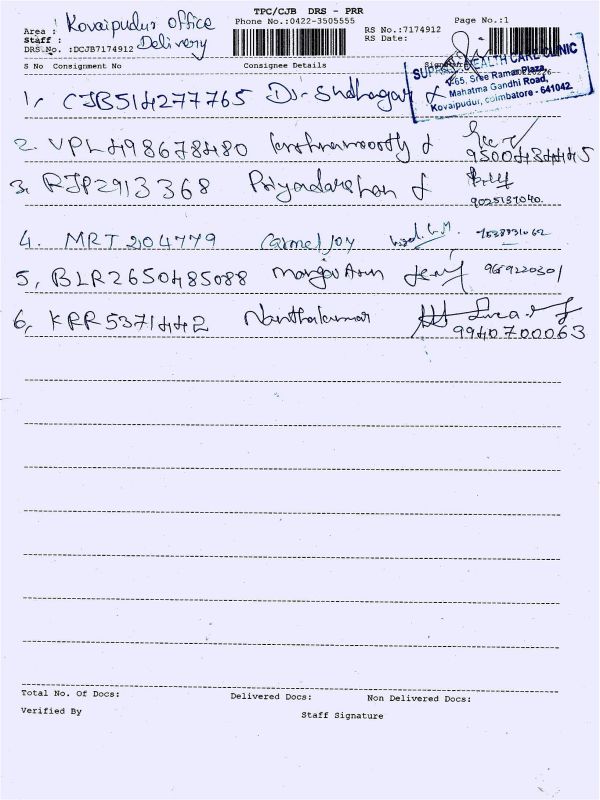 TPC/CJB DRS - PRR
Kovaipudur office
Area :
Phone No.:0422-3505555
RS No.:7174912
Page No.:1
Staff :
Delivery
RS Date:
DRS.No. :DCJB7174912
S No Consignment No Consignee Details Signature
SUPREME HEALTH CARE CLINIC
265, Sree Raman Plaza,
Mahatma Gandhi Road,
Kovaipudur, coimbatore - 641042.
1, CJB514277765 Dr. Sudhagar &
2. VPL498678480 krishnamoorthy &
9500484445
3. RJP2913368 Priyadarshan &
9025137040.
4. MRT 204779 Carmel Joy
5, BLR2650485088 Arun 9659220301
6, KRR5371442 Nanthakumar
9940700063
Total No. Of Docs: Delivered Docs: Non Delivered Docs:
Verified By
Staff Signature